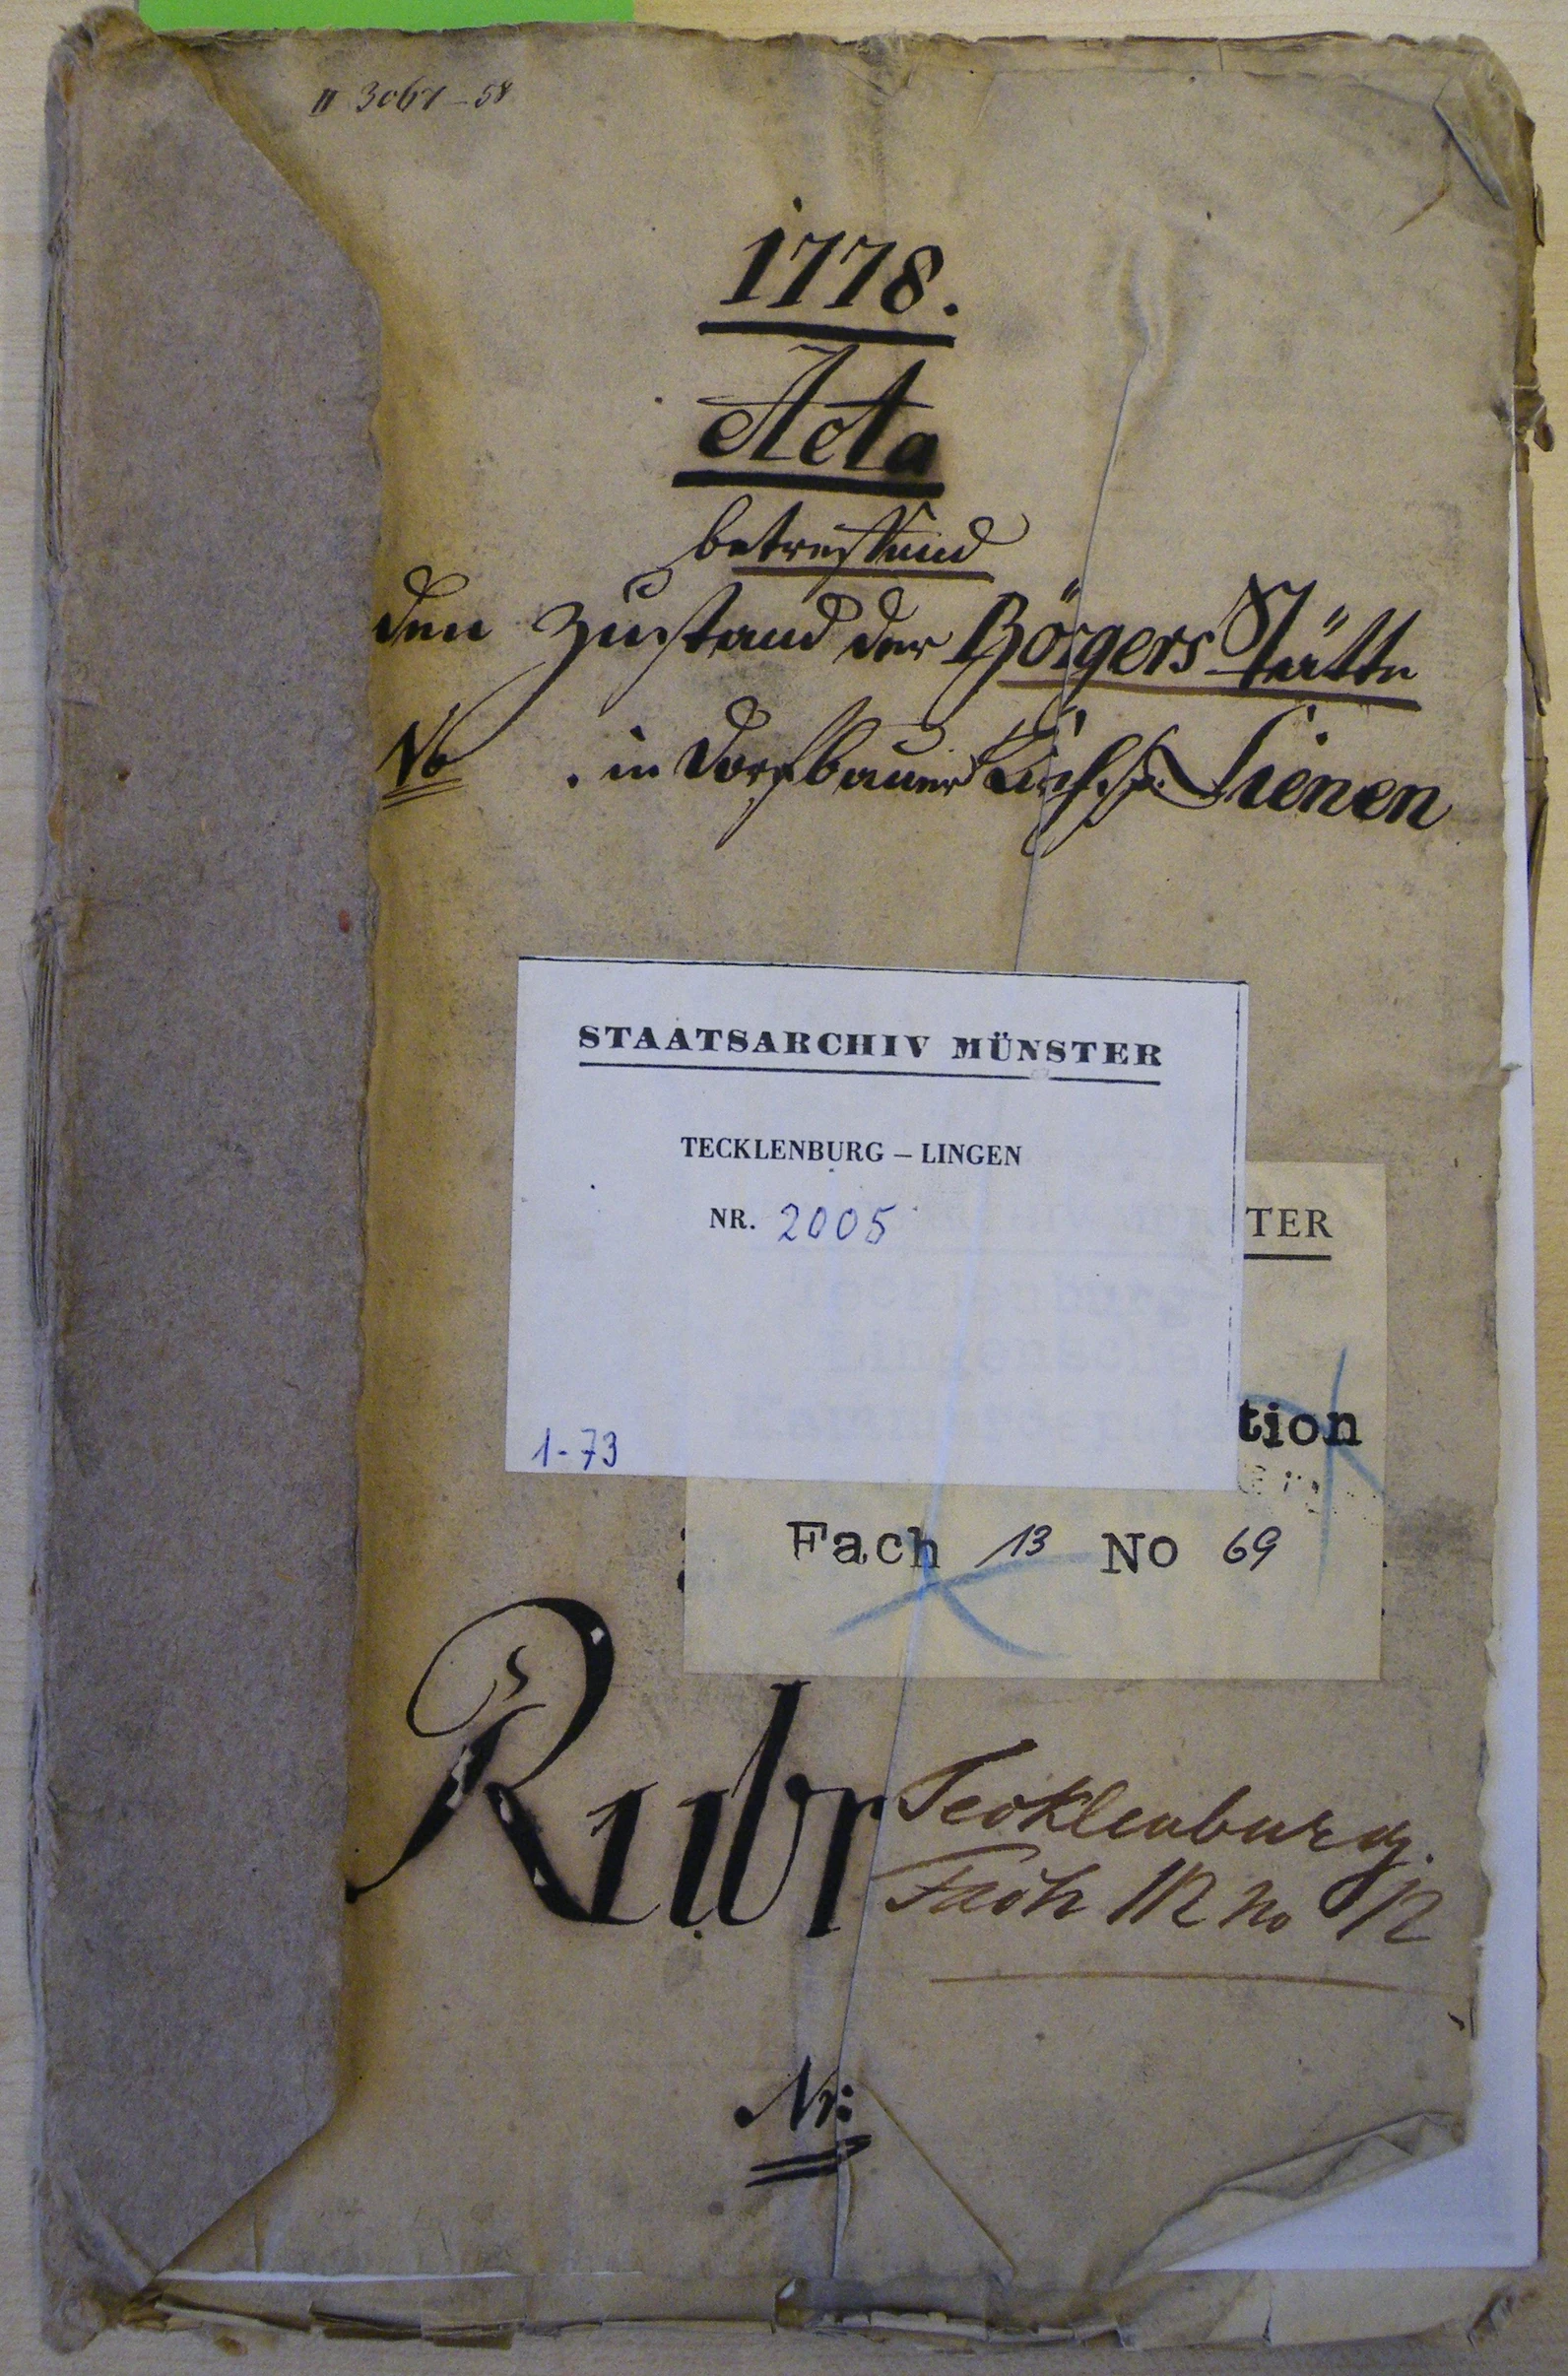 II 3067-58
1778.
Acta
betreffend
den Zustand der Börgers Stätte
No . in Dorfbauer Kirchsp. Lienen
STAATSARCHIV MÜNSTER
TECKLENBURG – LINGEN
NR. 2005
1-73
TER
tion
Fach 13 No 69
Rubr
Tecklenburg.
Fach 112 No 12
Nr: